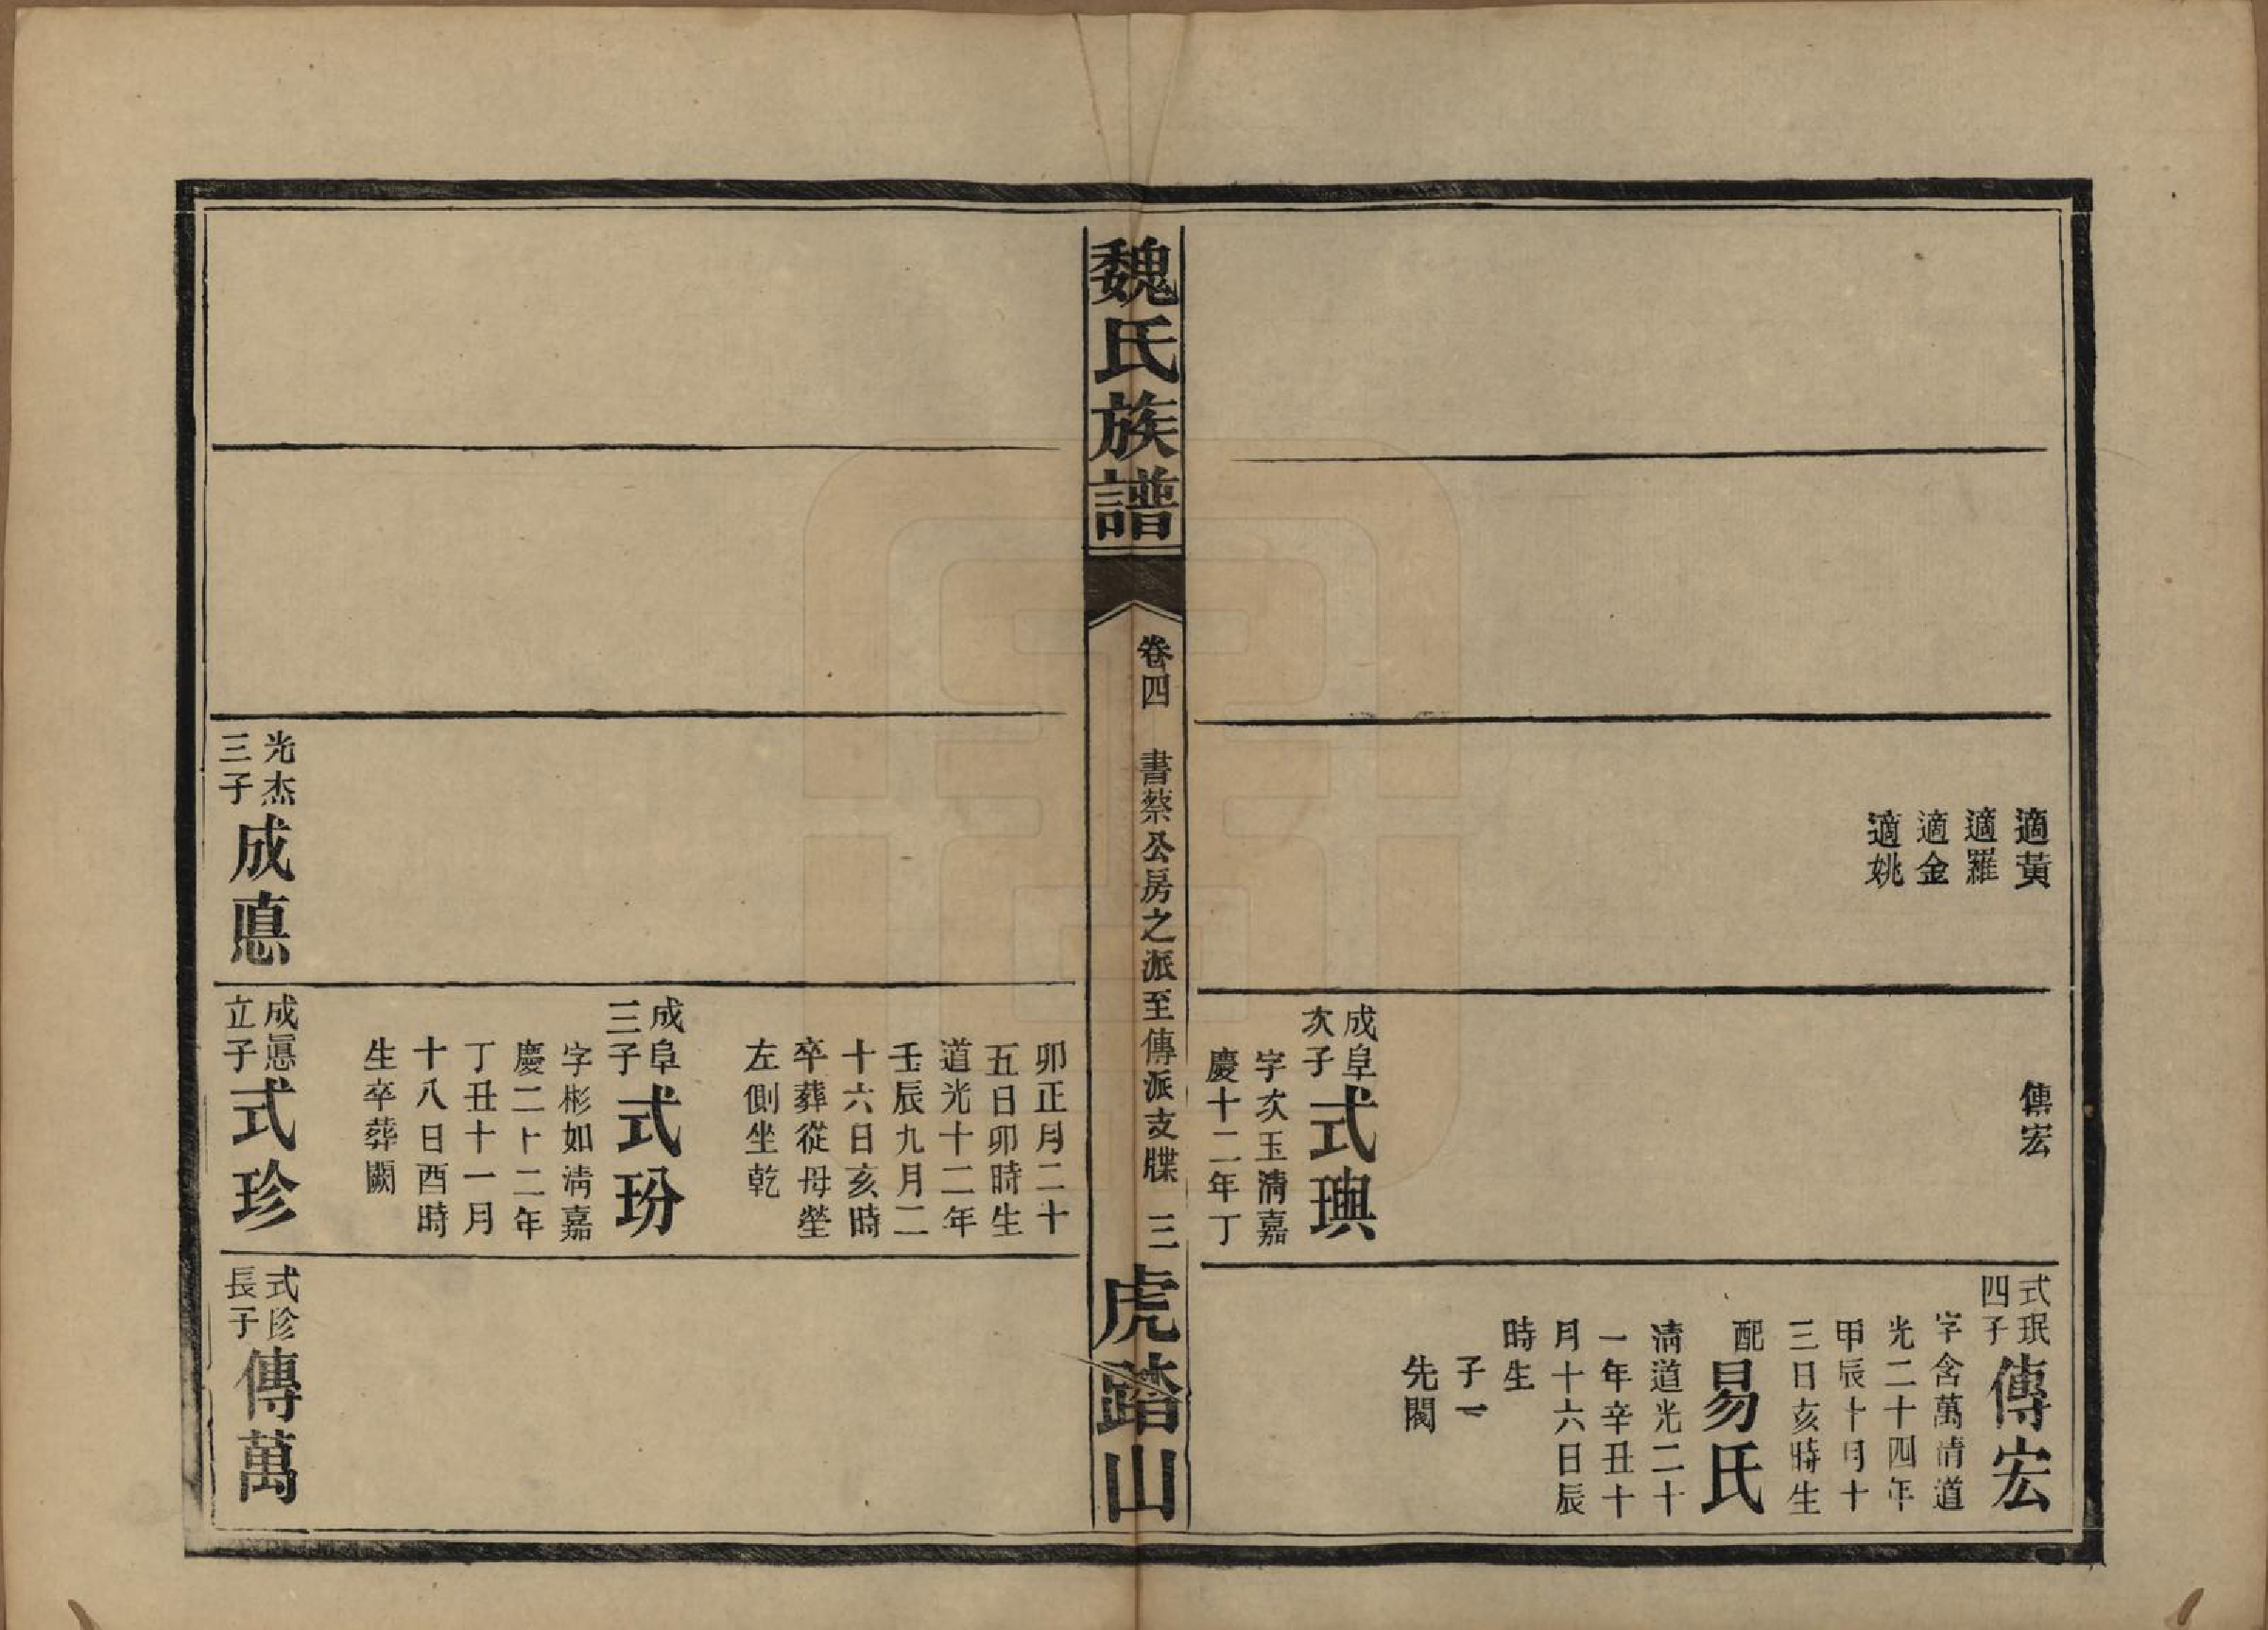 適黃
適羅
適金
適姚
傳宏
成阜
次子
式璵
字次玉淸嘉
慶十二年丁
式珉
四子
傳宏
字含萬淸道
光二十四年
甲辰十月十
三日亥時生
配
易氏
淸道光二十
一年辛丑十
月十六日辰
時生
子一
先閣
魏氏族譜
卷四 書蔡公房之派至傳派支牒 三
虎踏山
卯正月二十
五日卯時生
道光十二年
壬辰九月二
十六日亥時
卒葬從母塋
左側坐乾
成阜
三子
式玢
字彬如淸嘉
慶二十二年
丁丑十一月
十八日酉時
生卒葬闕
光杰
三子
成悳
成悳
立子
式珍
式珍
長子
傳萬